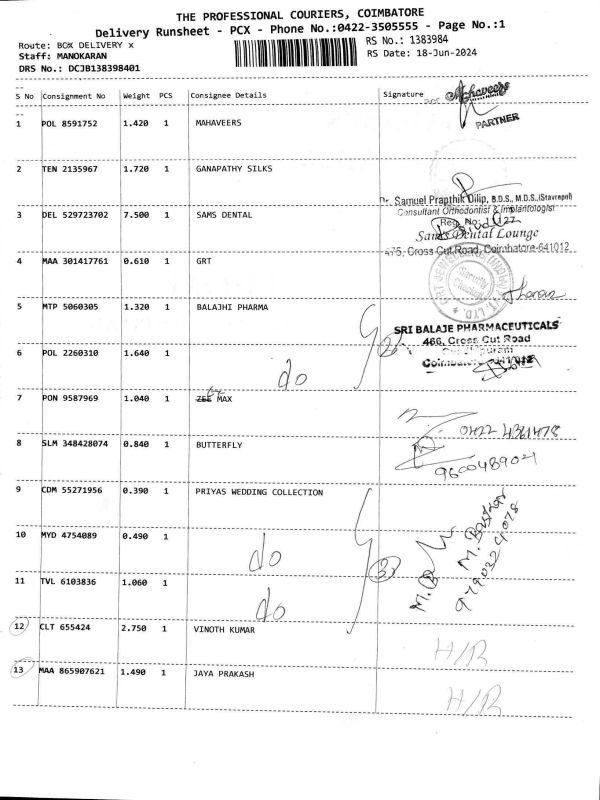 THE PROFESSIONAL COURIERS, COIMBATORE
Delivery Runsheet - PCX - Phone No.:0422-3505555 - Page No.:1
Route: BOX DELIVERY x
RS No.: 1383984
Staff: MANOKARAN
RS Date: 18-Jun-2024
DRS No.: DCJB138398401
S No Consignment No Weight PCS Consignee Details Signature
Mahaveers
PARTNER
1 POL 8591752 1.420 1 MAHAVEERS
2 TEN 2135967 1.720 1 GANAPATHY SILKS
Dr. Samuel Prapthik Dilip, B.D.S., M.D.S.,(Stavropol)
Consultant Orthodontist & Implantologist
3 DEL 529723702 7.500 1 SAMS DENTAL
Reg. No.
Sam's Dental Lounge
475, Cross Cut Road, Coimbatore-641012
4 MAA 301417761 0.610 1 GRT
5 MTP 5060305 1.320 1 BALAJHI PHARMA
SRI BALAJE PHARMACEUTICALS
466, Cross Cut Road
6 POL 2260310 1.640 1 do
7 PON 9587969 1.040 1 ZEE MAX
0422 4361478
8 SLM 348428074 0.840 1 BUTTERFLY
9600489021
9 CDM 55271956 0.390 1 PRIYAS WEDDING COLLECTION
M. Baskar
10 MYD 4754089 0.490 1 do
11 TVL 6103836 1.060 1 do
12 CLT 655424 2.750 1 VINOTH KUMAR H/R
13 MAA 865907621 1.490 1 JAYA PRAKASH H/R